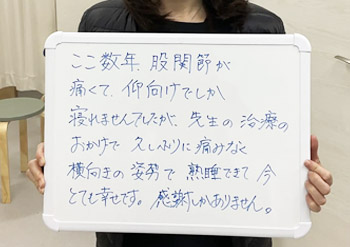 ここ数年、股関節が
痛くて、仰向けでしか
寝れませんでしたが、先生の治療の
おかげで久しぶりに痛みなく
横向きの姿勢で熟睡できて今
とても幸せです。感謝しかありません。